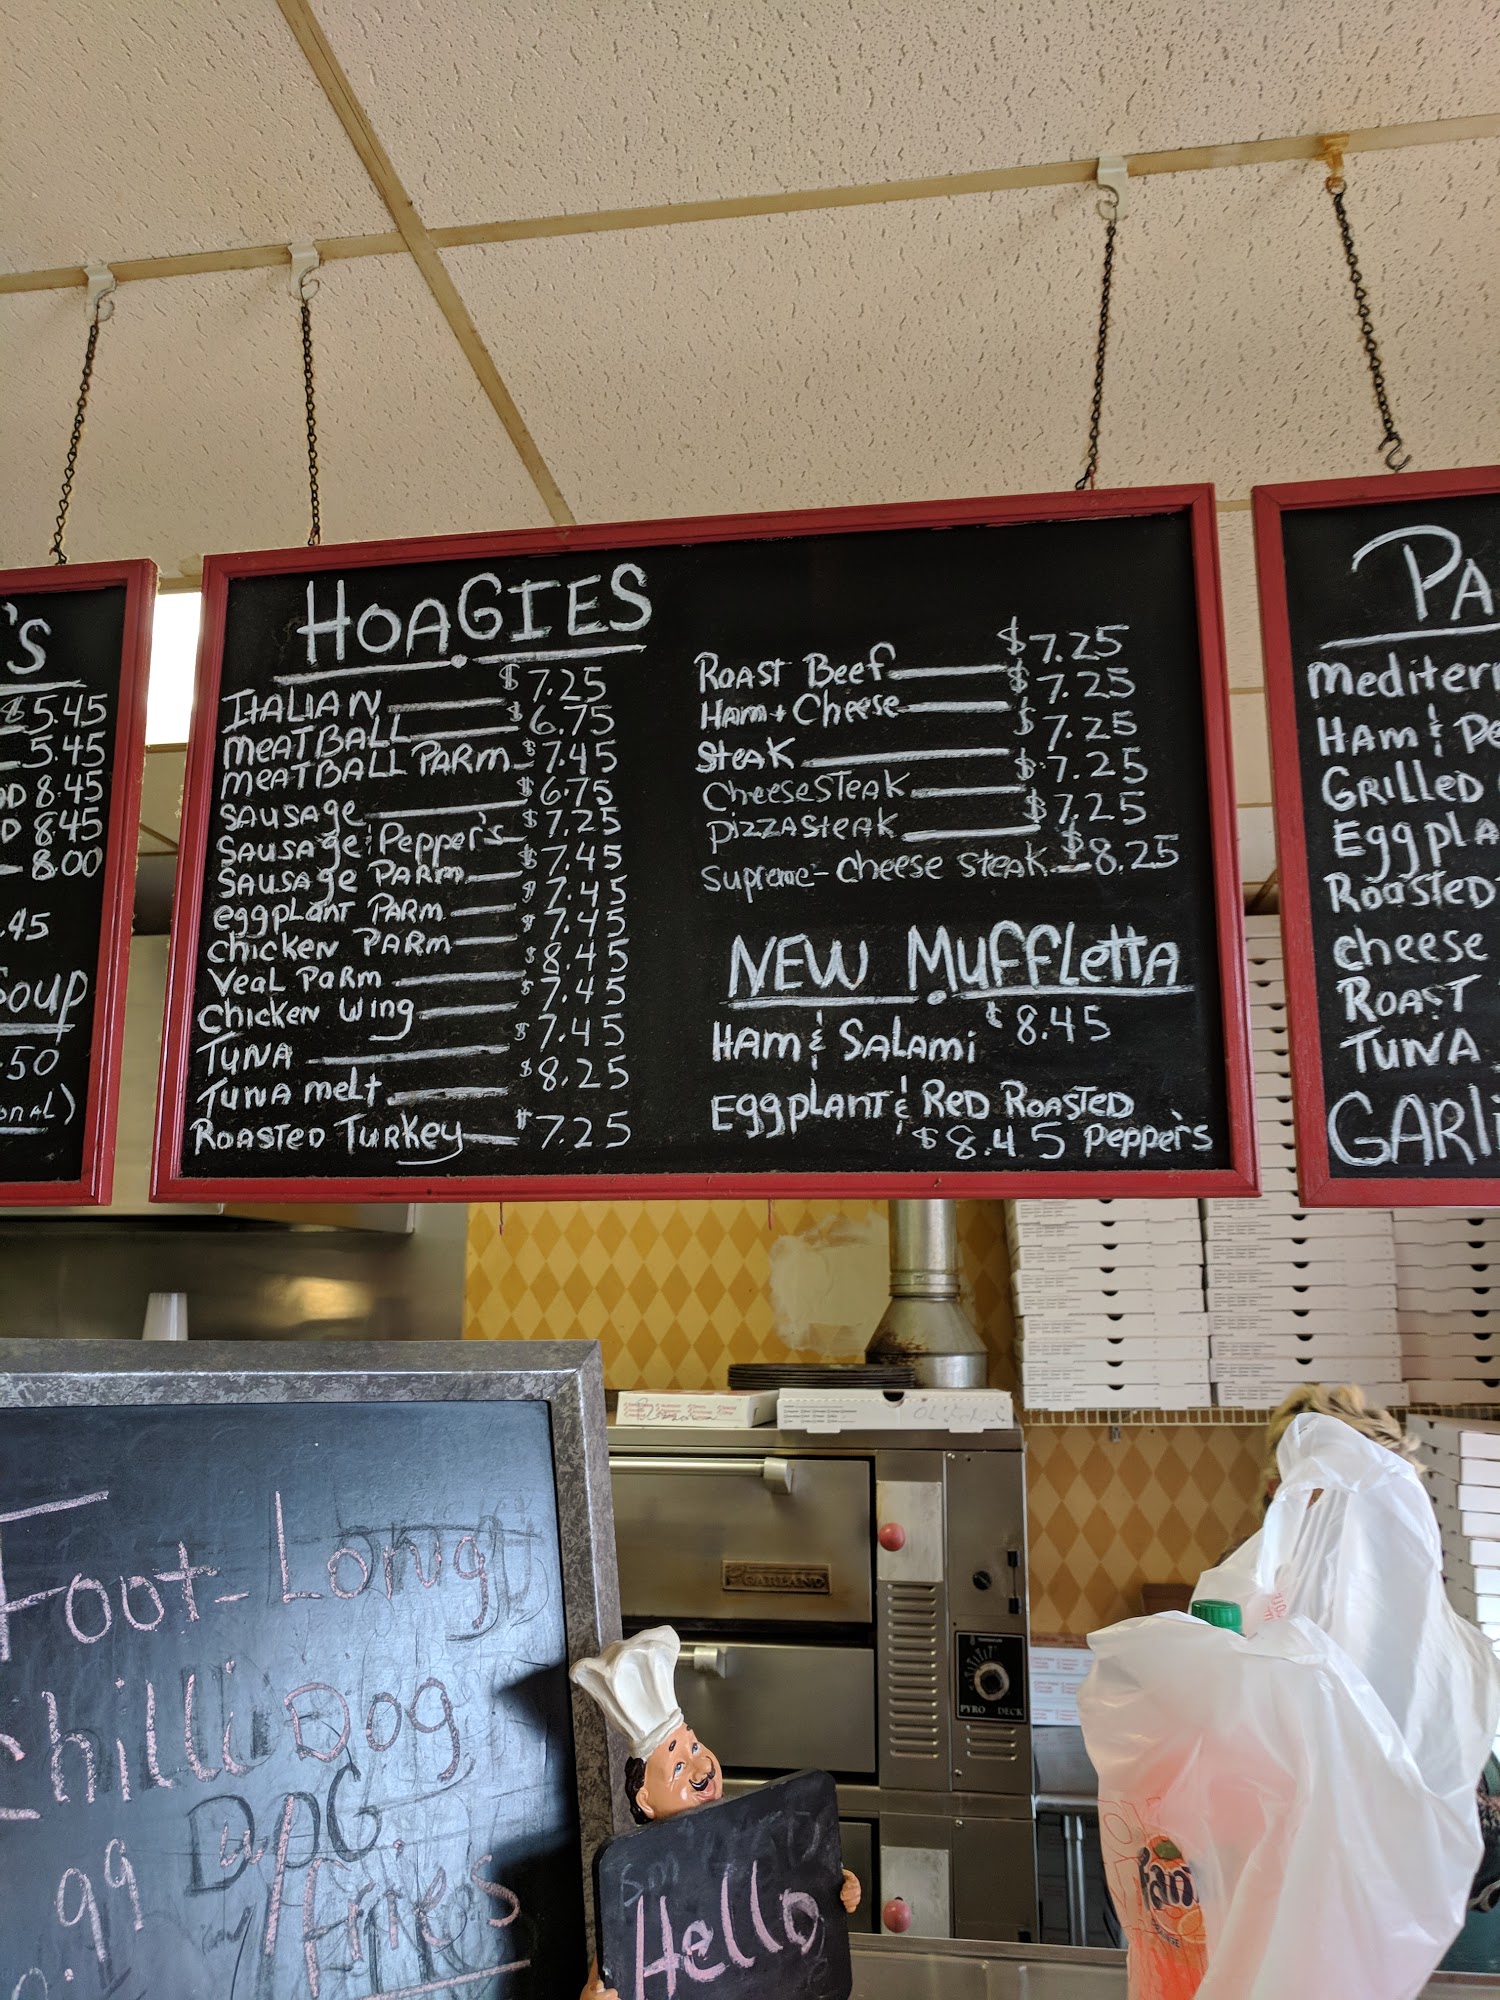 's
$5.45
5.45
8.45
8.45
8.00
.45
Soup
.50
HOAGIES
ITALIAN $7.25
MEATBALL $6.75
MEATBALL PARM $7.45
SAUSAGE $6.75
SAUSAGE & Pepper's $7.25
SAUSAGE PARM $7.45
eggplANT PARM $7.45
chicken PARM $7.45
Veal PARM $8.45
Chicken Wing $7.45
TUNA $7.45
TUNA melt $8.25
ROASTED TURKEY $7.25
ROAST Beef $7.25
HAM + Cheese $7.25
STeak $7.25
CheeseSTeak $7.25
pizzASteak $7.25
Supreme-cheese steak $8.25
NEW Muffletta
HAM & SALAMi $8.45
Eggplant & RED ROASTED
$8.45 pepper's
PA
HAM &
GRILLED
Eggpla
ROASTED
cheese
ROAST
TUNA
GARLI
Foot-Long
Chilli Dog
DOG
.99 w/fries
GARLAND
PYRO DECK
Hello
Fanta